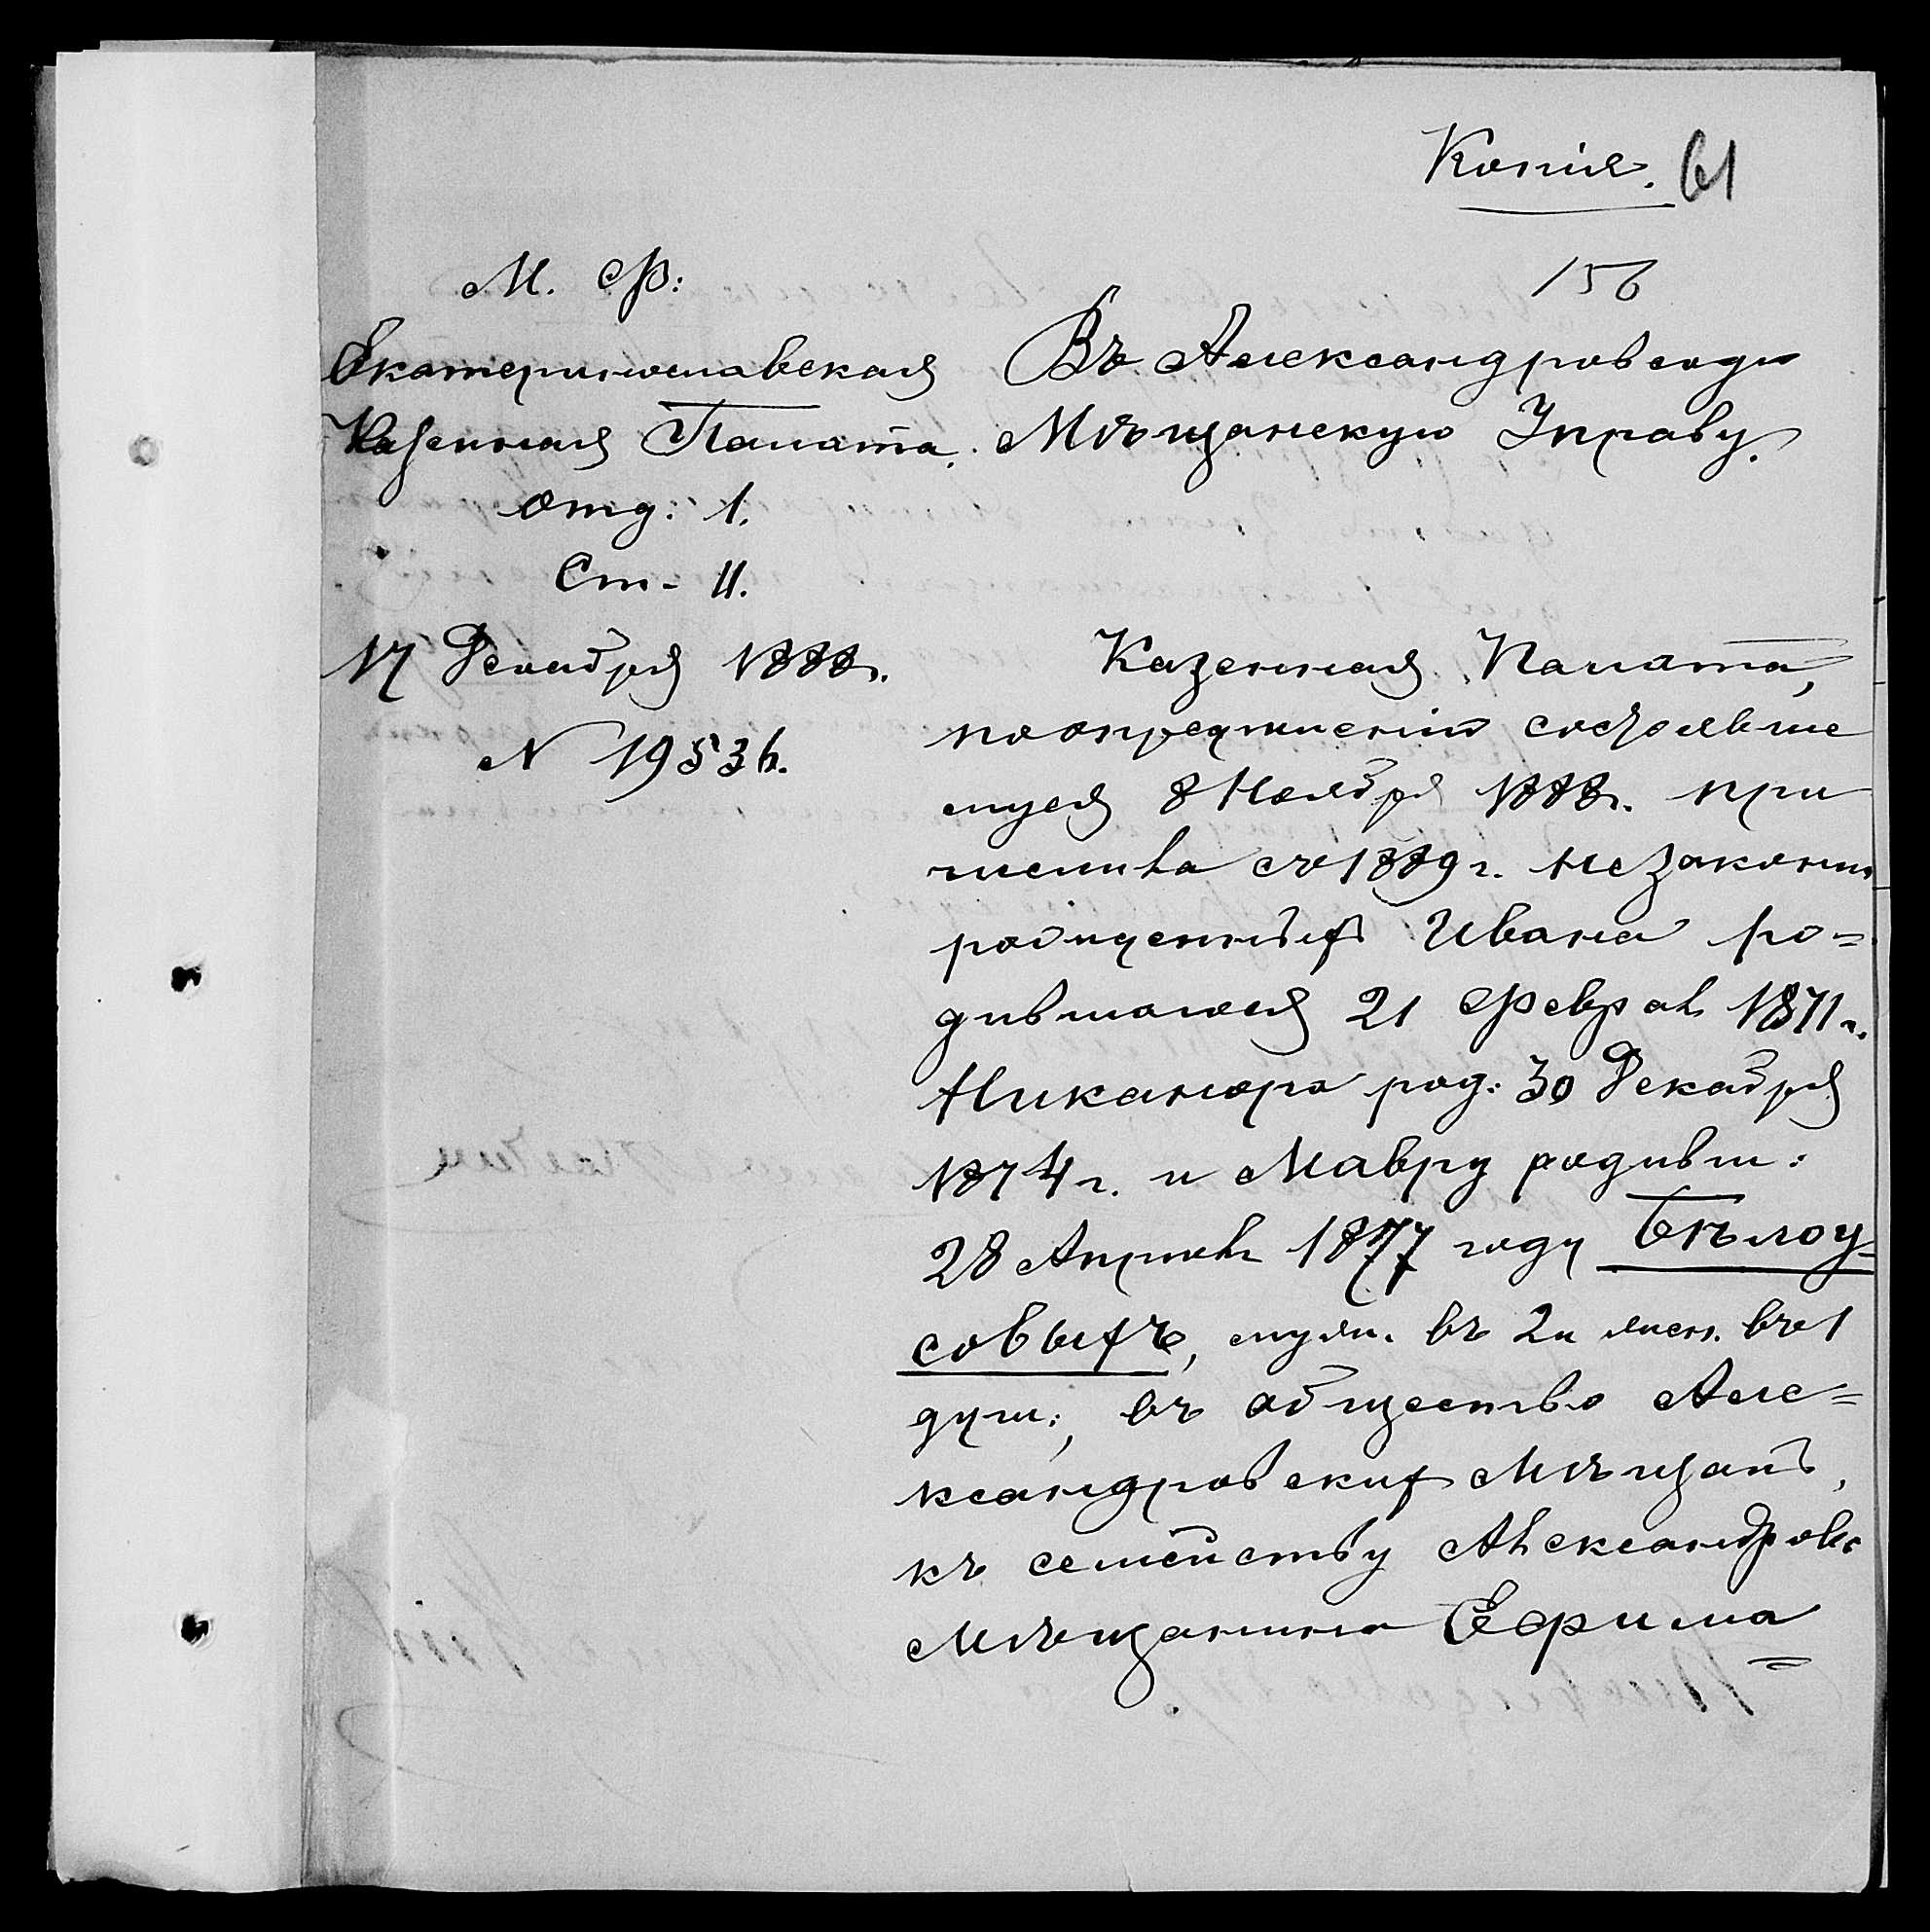 Копія. 61
156
М. Ф:
Екатеринославская
Казенная Палата.
Отд: 1.
Ст- II.
17 Декабря 1888г.
N 19536.
Въ Александровскую
Мѣщанскую Управу.
Казенная Палата,
по опредѣленію состоявше
муся 8 Ноября 1888г. при
числила съ 1889 г. незаконно
рожденныхъ Ивана ро=
дившагося 21 Феврал 1871 г.
Никанора род: 30 Декабря
1874 г. и Мавру родивш:
28 Апреля 1877 году Бѣлоу-
совыхъ, муж. въ 2и жен. въ 1
душ:, въ общество Але=
ксандровских Мѣщанъ,
къ семейству Александровс
Мѣщанина Ефима =